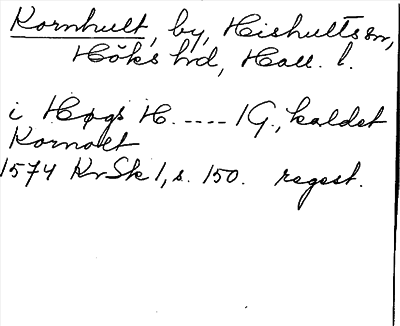 Kornhult, by, Hishults sn,
Höks hd, Hall. l.
i Høgs H. ---- 1G., kaldet
Kornolt
1574 KrSk 1, s. 150. regest.